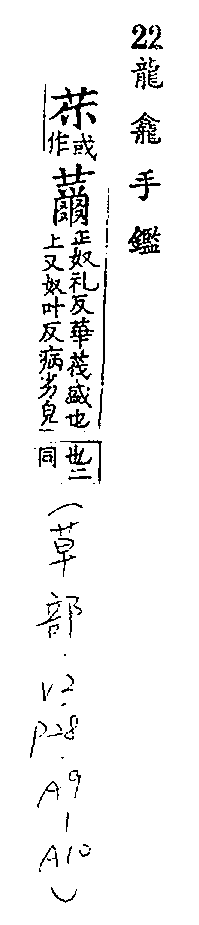 22龍龕手鑑
苶或作薾正奴礼反華茂盛也
上又奴叶反病劣皃
也二同
(草部.V2.P28.A9-A10)